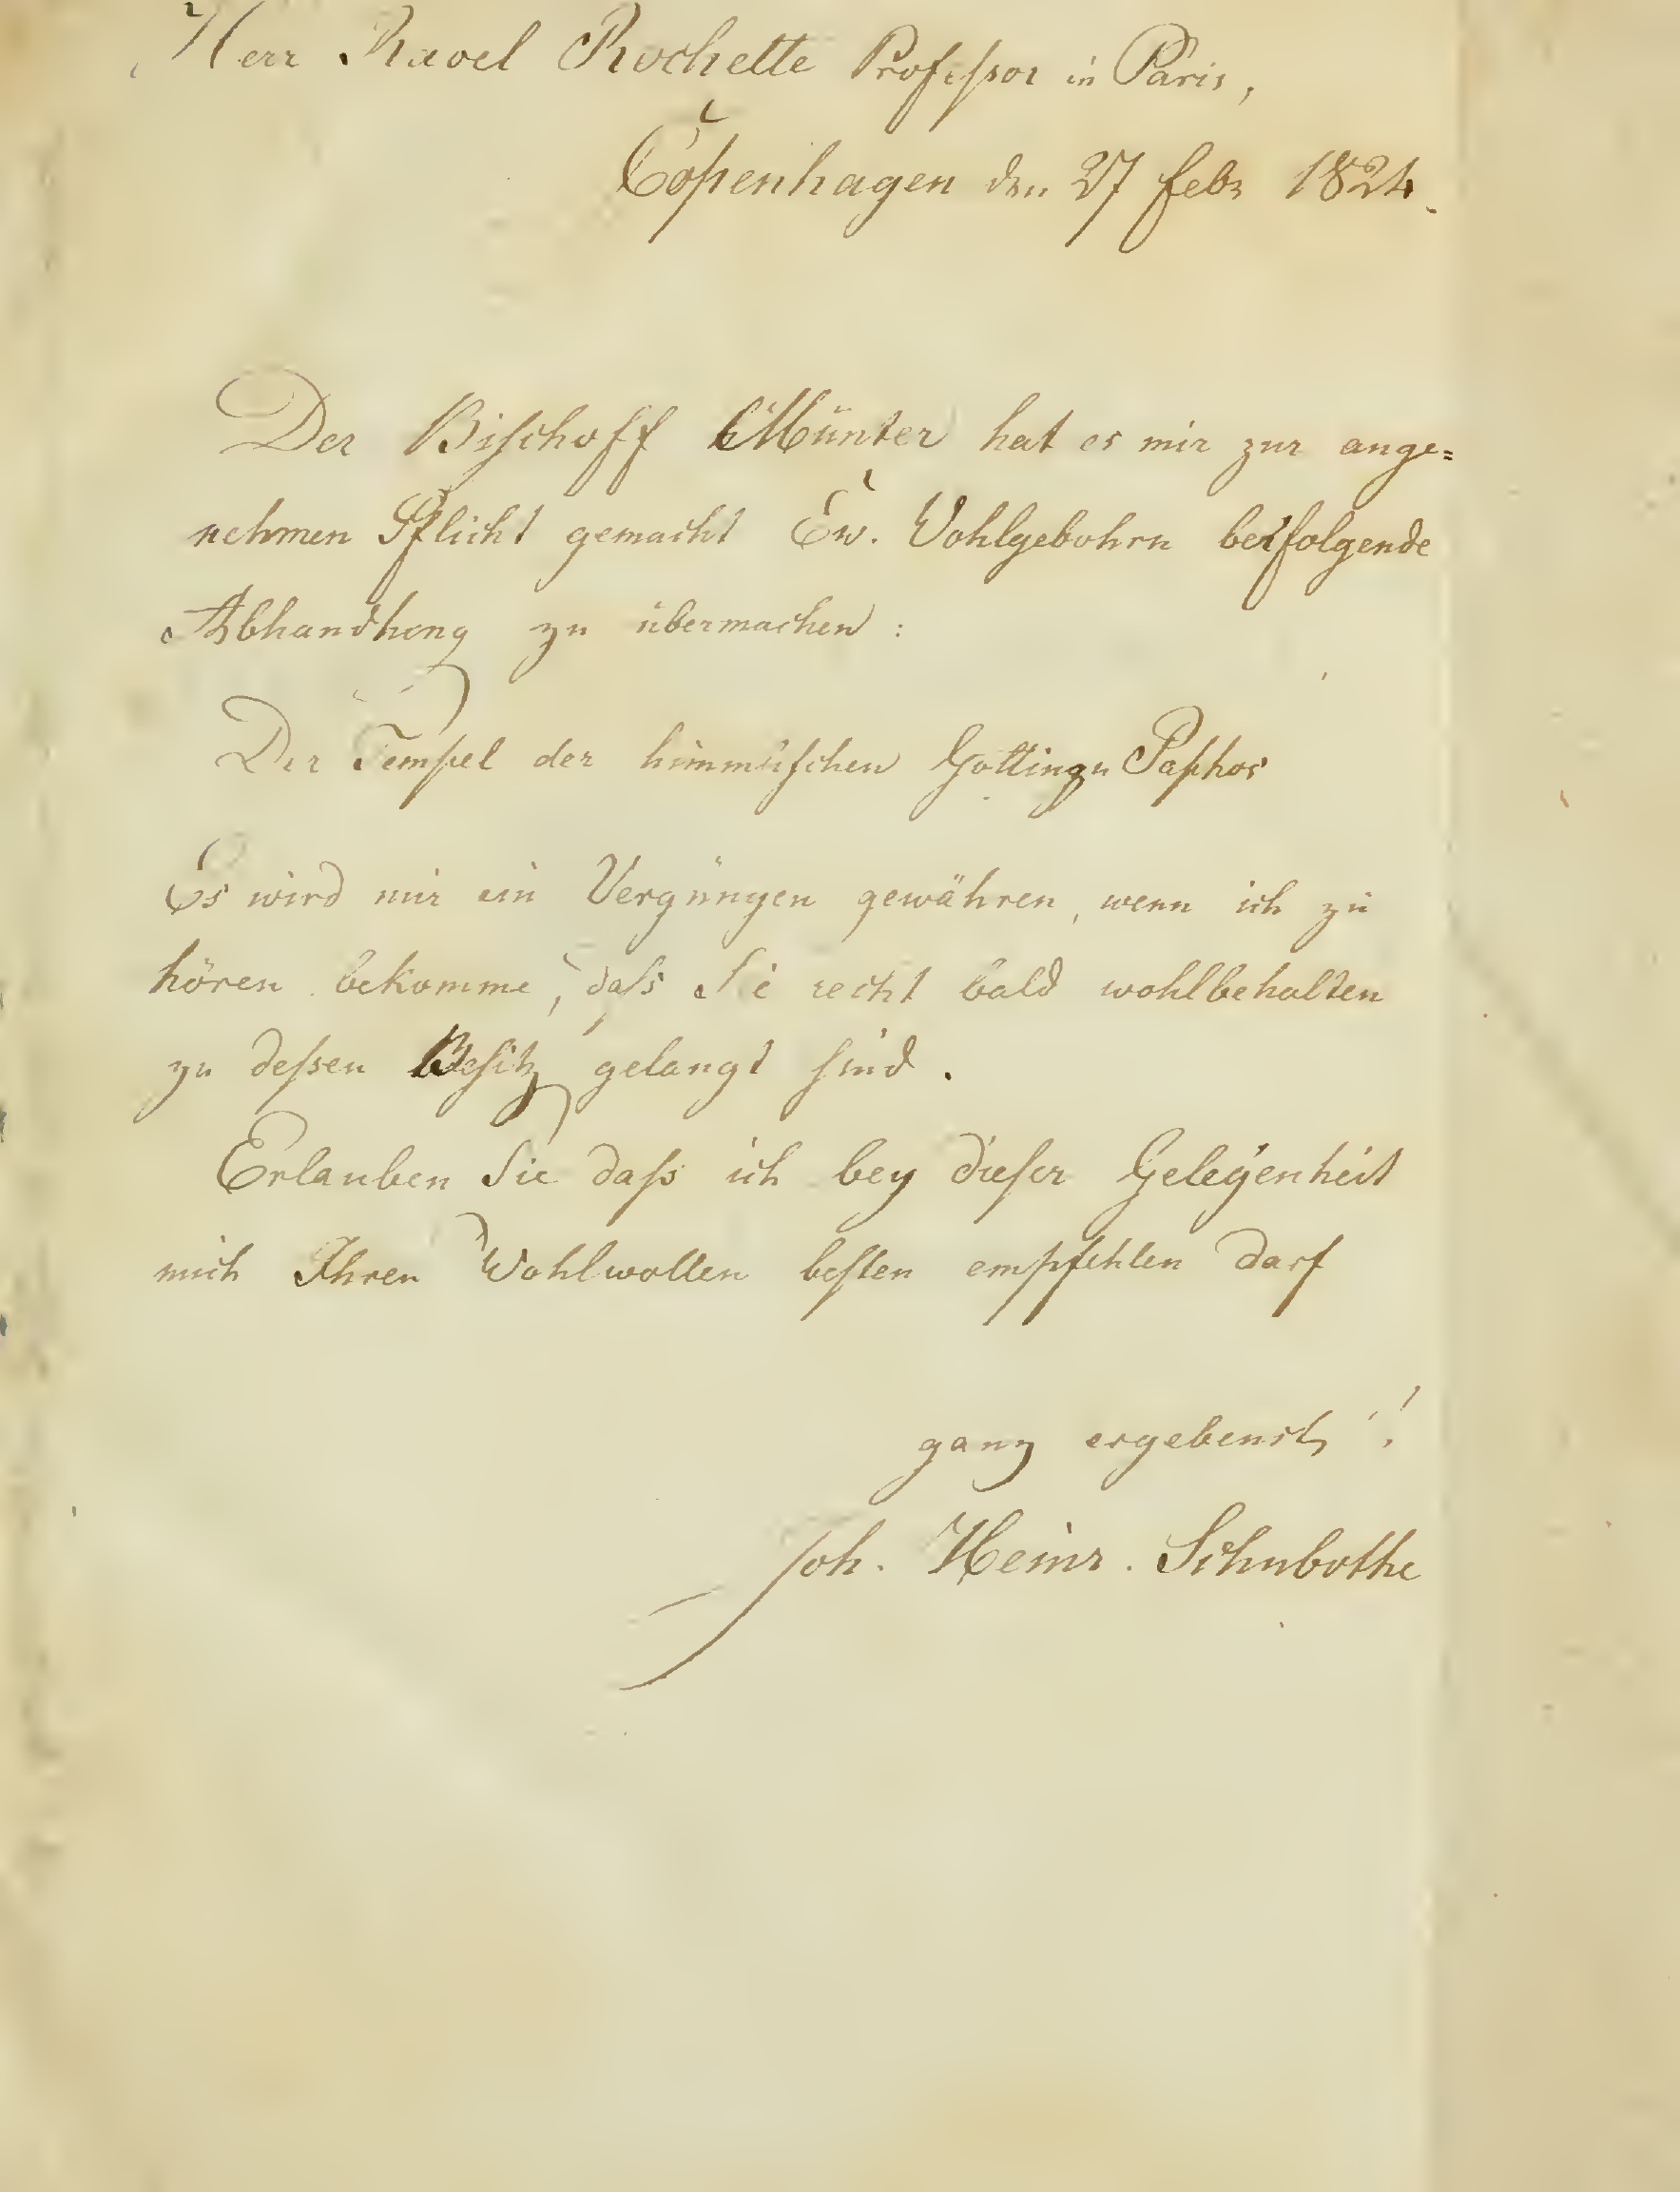 Herr Raoel Rochette Professor in Paris,
Copenhagen den 27 febr 1824.
Der Bischoff Münter hat es mir zur ange=
nehmen Pflicht gemacht Ew. Wohlgebohrn beifolgende
Abhandlung zu übermachen :
Der Tempel der himmlischen Gottin zu Paphos
Es wird mir ein Vergnügen gewähren, wenn ich zu
hören bekomme, daß Sie recht bald wohlbehalten
zu deßen Besitz gelangt sind.
Erlauben Sie daß ich bey dieser Gelegenheit
mich Ihren Wohlwollen besten empfehlen darf
ganz ergebenst !
Joh. Heinr.